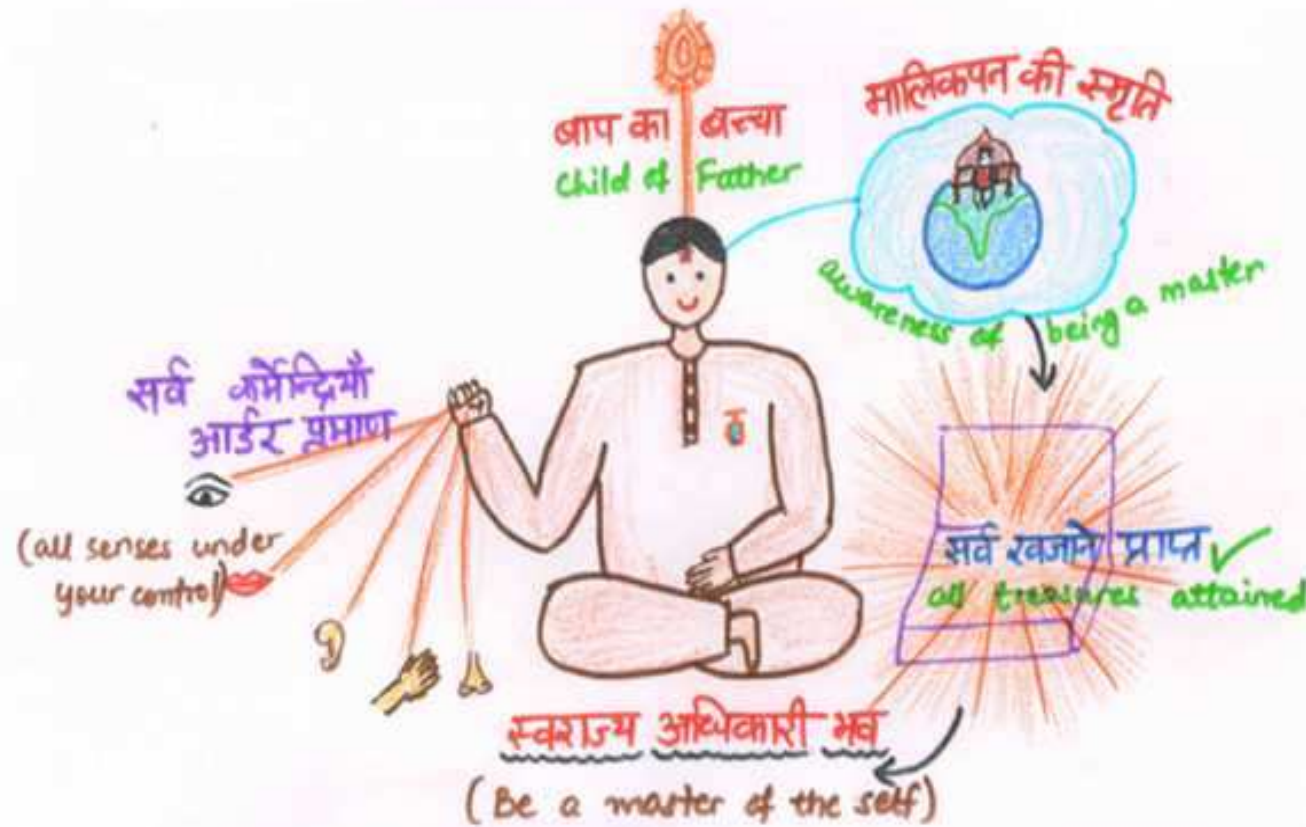 बाप का बच्चा
Child of Father
मालिकपन की स्मृति
awareness of being a master
सर्व कर्मेन्द्रियाँ
आर्डर प्रमाण
(all senses under
your control)
सर्व खजाने प्राप्त
all treasures attained
स्वराज्य अधिकारी भव
(Be a master of the self)